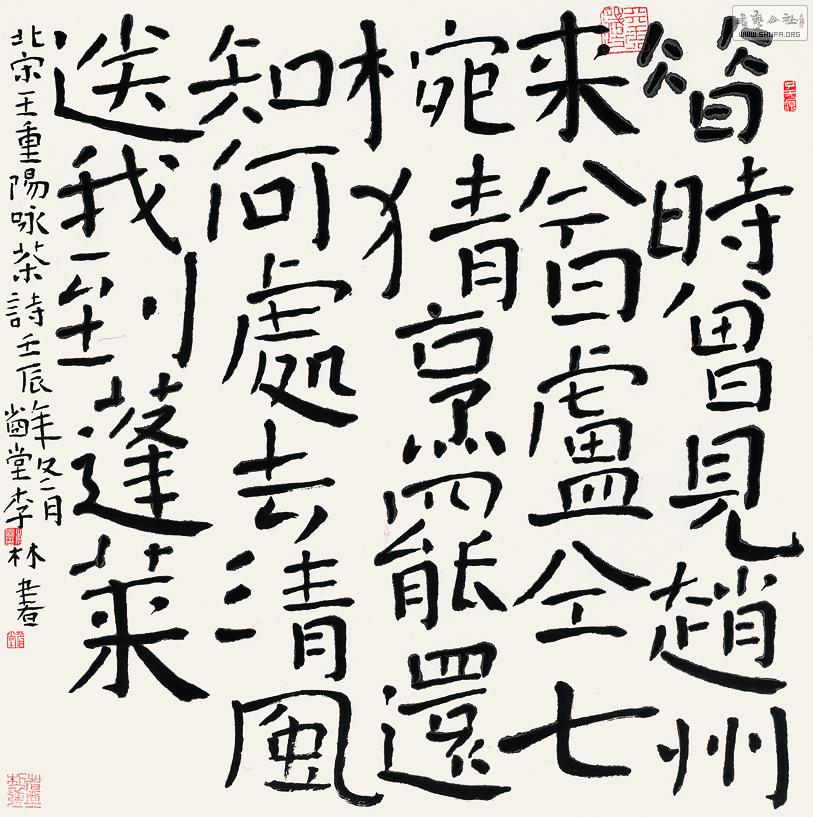 書藝公社
WWW.SHUFA.ORG
昔時曾見趙州
来今日盧仝七
椀猜烹罷還
知何處去清風
送我到蓬莱
北宋王重陽咏茶詩壬辰年冬月
堂李林書